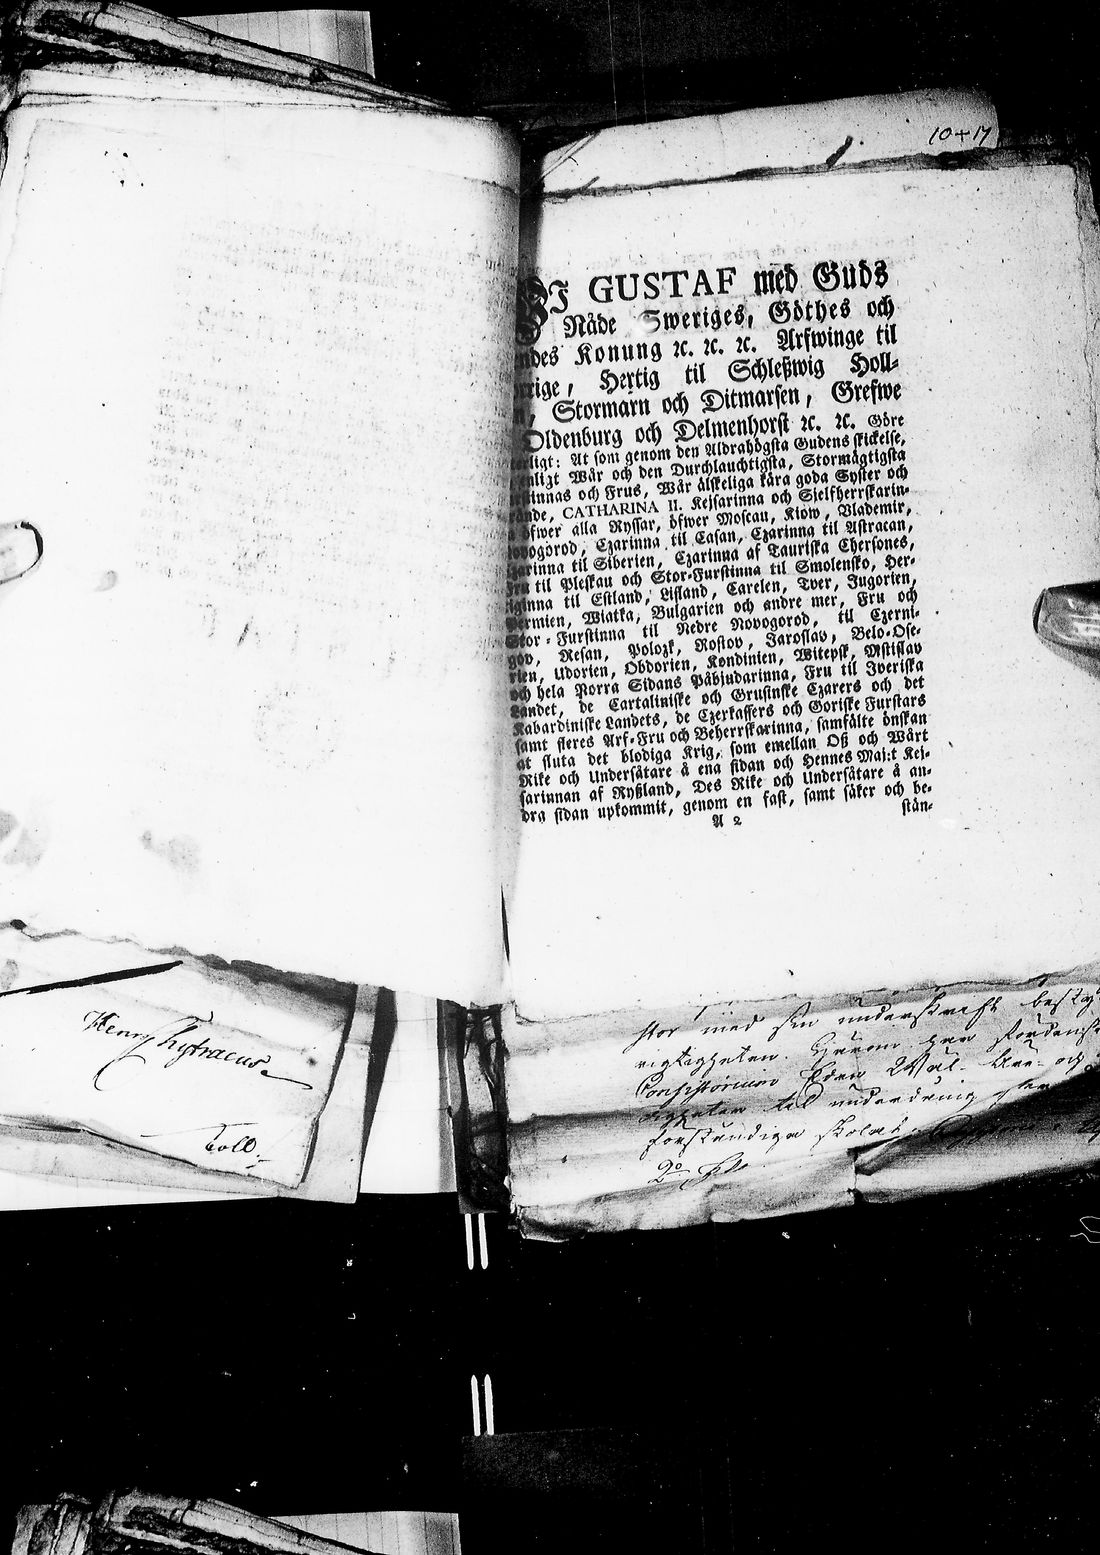 10+17
WJ GUSTAF med Guds
Nåde Sweriges, Göthes och
endes Konung ꝛc. ꝛc. ꝛc. Arfwinge til
orrige, Hertig til Schleßwig Holl-
n, Stormarn och Ditmarsen, Grefwe
Oldenburg och Delmenhorst ꝛc. ꝛc. Göre
terligt: At som genom den Aldrahögsta Gudens skickelse,
enligt Wår och den Durchlauchtigsta, Stormägtigsta
rstinnas och Frus, Wår älskeliga kära goda Syster och
rände, CATHARINA II. Kejsarinna och Sjelfherrskarin-
öfwer alla Ryssar, öfwer Moscau, Kiow, Vlademir,
Novogorod, Czarinna til Casan, Czarinna til Astracan,
Czarinna til Siberien, Czarinna af Tauriska Chersones,
Fru til Pleskau och Stor-Furstinna til Smolensko, Her-
tiginna til Estland, Lifland, Carelen, Tver, Jugorien,
Permien, Wiatka, Bulgarien och andre mer, Fru och
Stor-Furstinna til Nedre Novogorod, til Czerni-
gov, Resan, Polozk, Rostov, Jaroslav, Belo-Ose-
rien, Udorien, Obdorien, Kondinien, Witepsk, Mstislav
och hela Norra Sidans Påbjudarinna, Fru til Iveriska
Landet, de Cartaliniske och Grusinske Czarers och det
Kabardiniske Landets, de Czerkassers och Goriske Furstars
samt fleres Arf-Fru och Beherrskarinna, samfälte önskan
at sluta det blodiga Krig, som emellan Oß och Wårt
Rike och Undersåtare å ena sidan och Hennes Maj:t Kej-
sarinnan af Ryßland, Des Rike och Undersåtare å an-
dra sidan upkommit, genom en fast, samt säker och be-
stån-
A 2
Henr Kytraeus
Toll
stor med sin underskrift
Consistorium
til underdånig
2o